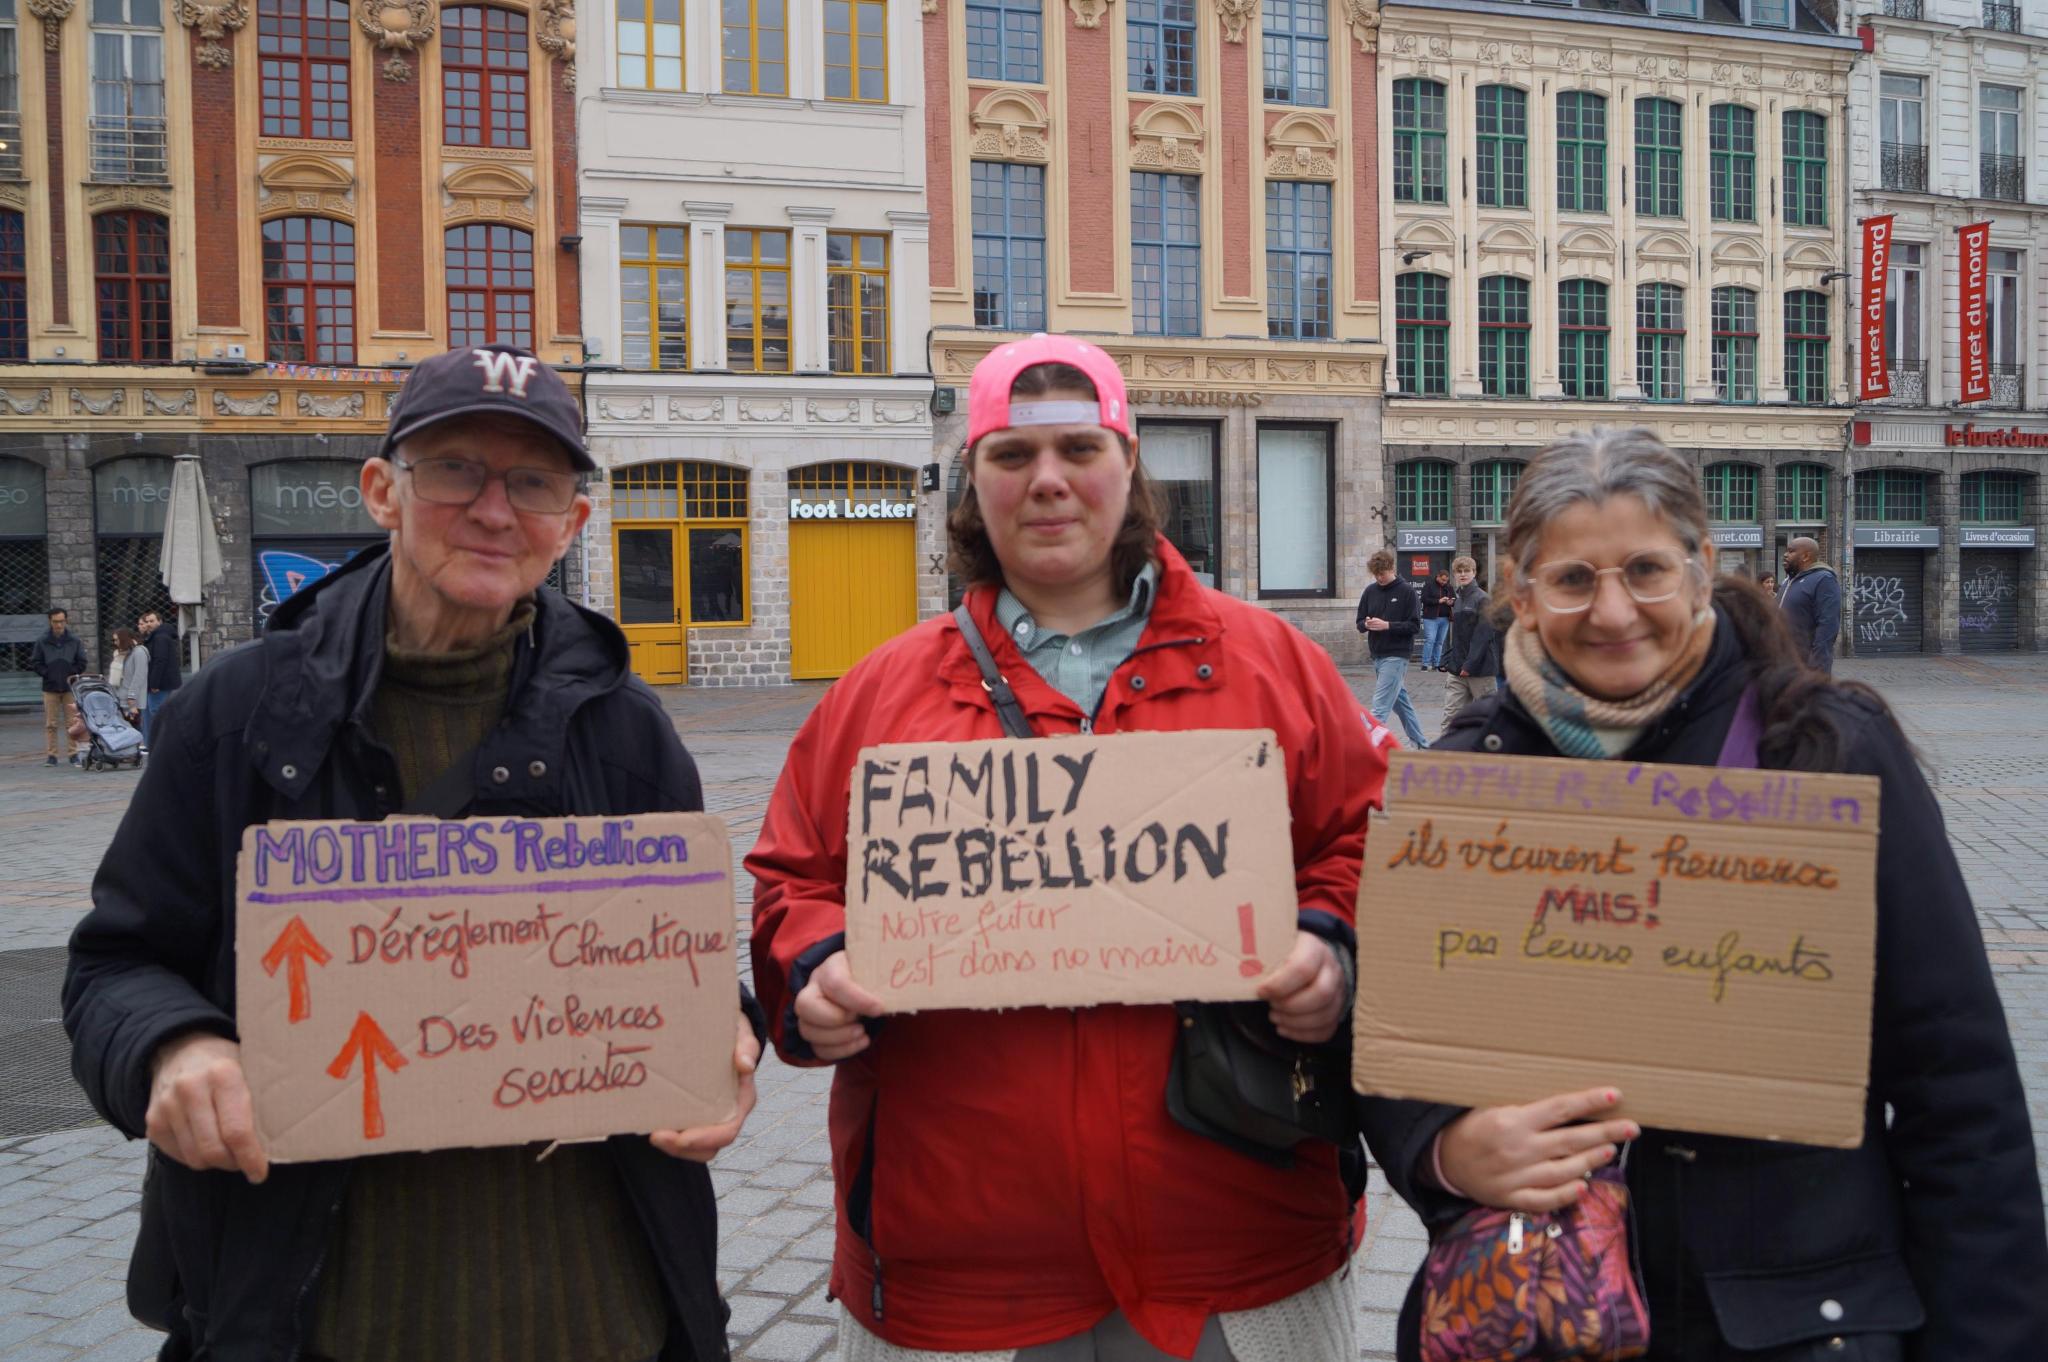 Furet du nord
Furet du nord
BNP PARIBAS
le furet du nord
méo
méo
Foot Locker
Presse
furet.com
Librairie
Livres d'occasion
W
MOTHERS' Rebellion
Dérèglement
Climatique
Des Violences
sexistes
FAMILY
REBELLION
Notre futur
est dans no mains !
MOTHERS' Rebellion
ils vécurent heureux
MAIS!
pas leurs enfants